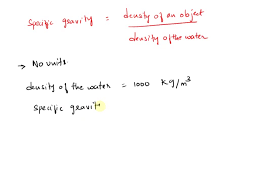 specific gravity = density of an object / density of the water
→ No units
density of the water = 1000 Kg/m³
specific gravit